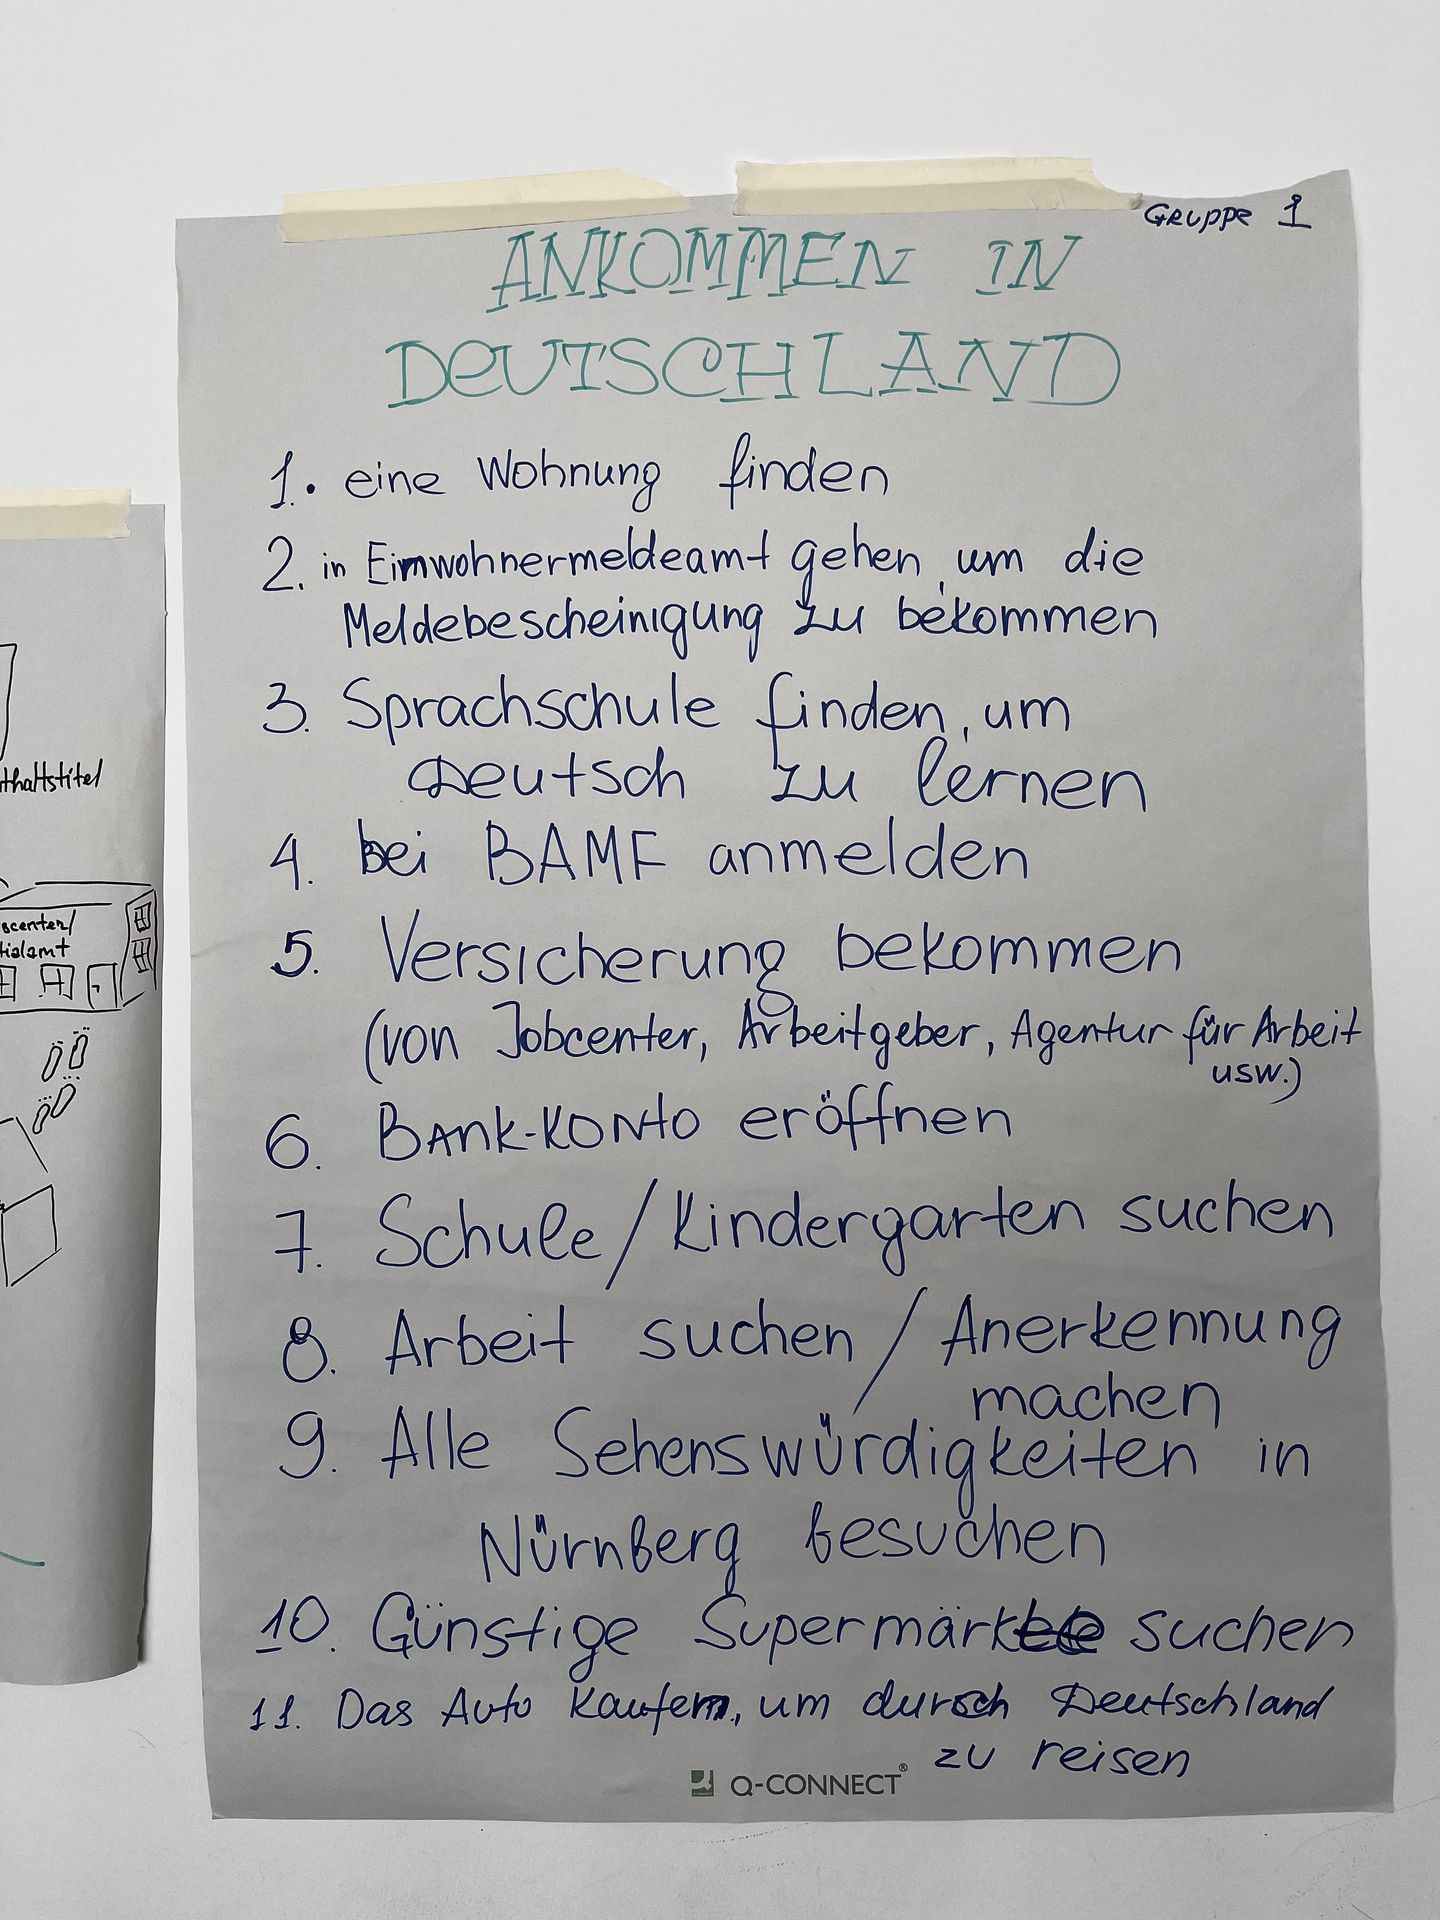 Gruppe 1
ANKOMMEN IN
DEUTSCHLAND
1. eine Wohnung finden
2. in Einwohnermeldeamt gehen, um die
Meldebescheinigung zu bekommen
3. Sprachschule finden, um
Deutsch zu lernen
4. bei BAMF anmelden
5. Versicherung bekommen
(von Jobcenter, Arbeitgeber, Agentur für Arbeit
usw.)
6. Bank-Konto eröffnen
7. Schule/Kindergarten suchen
8. Arbeit suchen / Anerkennung
machen
9. Alle Sehenswürdigkeiten in
Nürnberg besuchen
10. Günstige Supermärkte suchen
11. Das Auto kaufen, um durch Deutschland
zu reisen
Q-CONNECT®
thaltstitel
bcenter/
zialamt